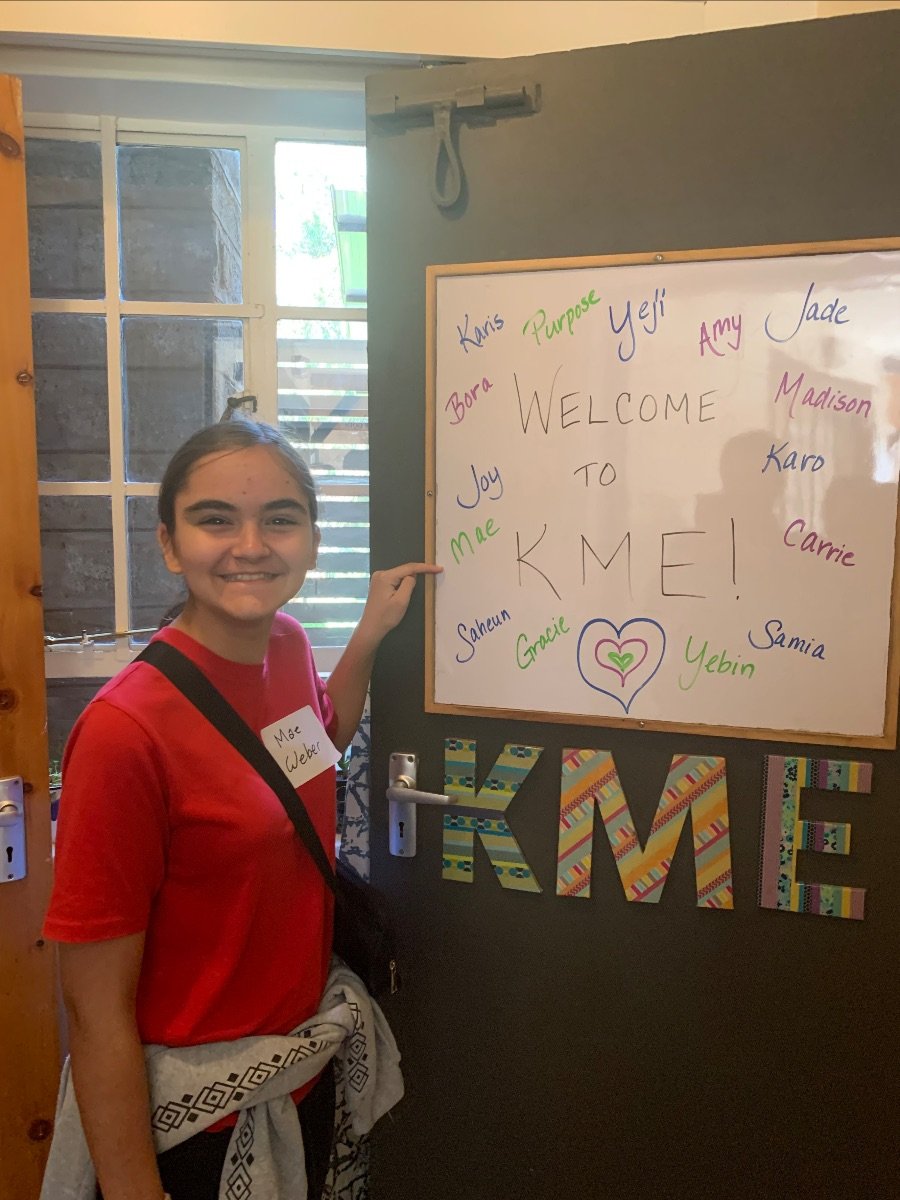 Karis Purpose Yeji Amy Jade
Bora WELCOME Madison
Joy TO Karo
Mae KME! Carrie
Saheun Gracie Yebin Samia
Mae
Weber
KME